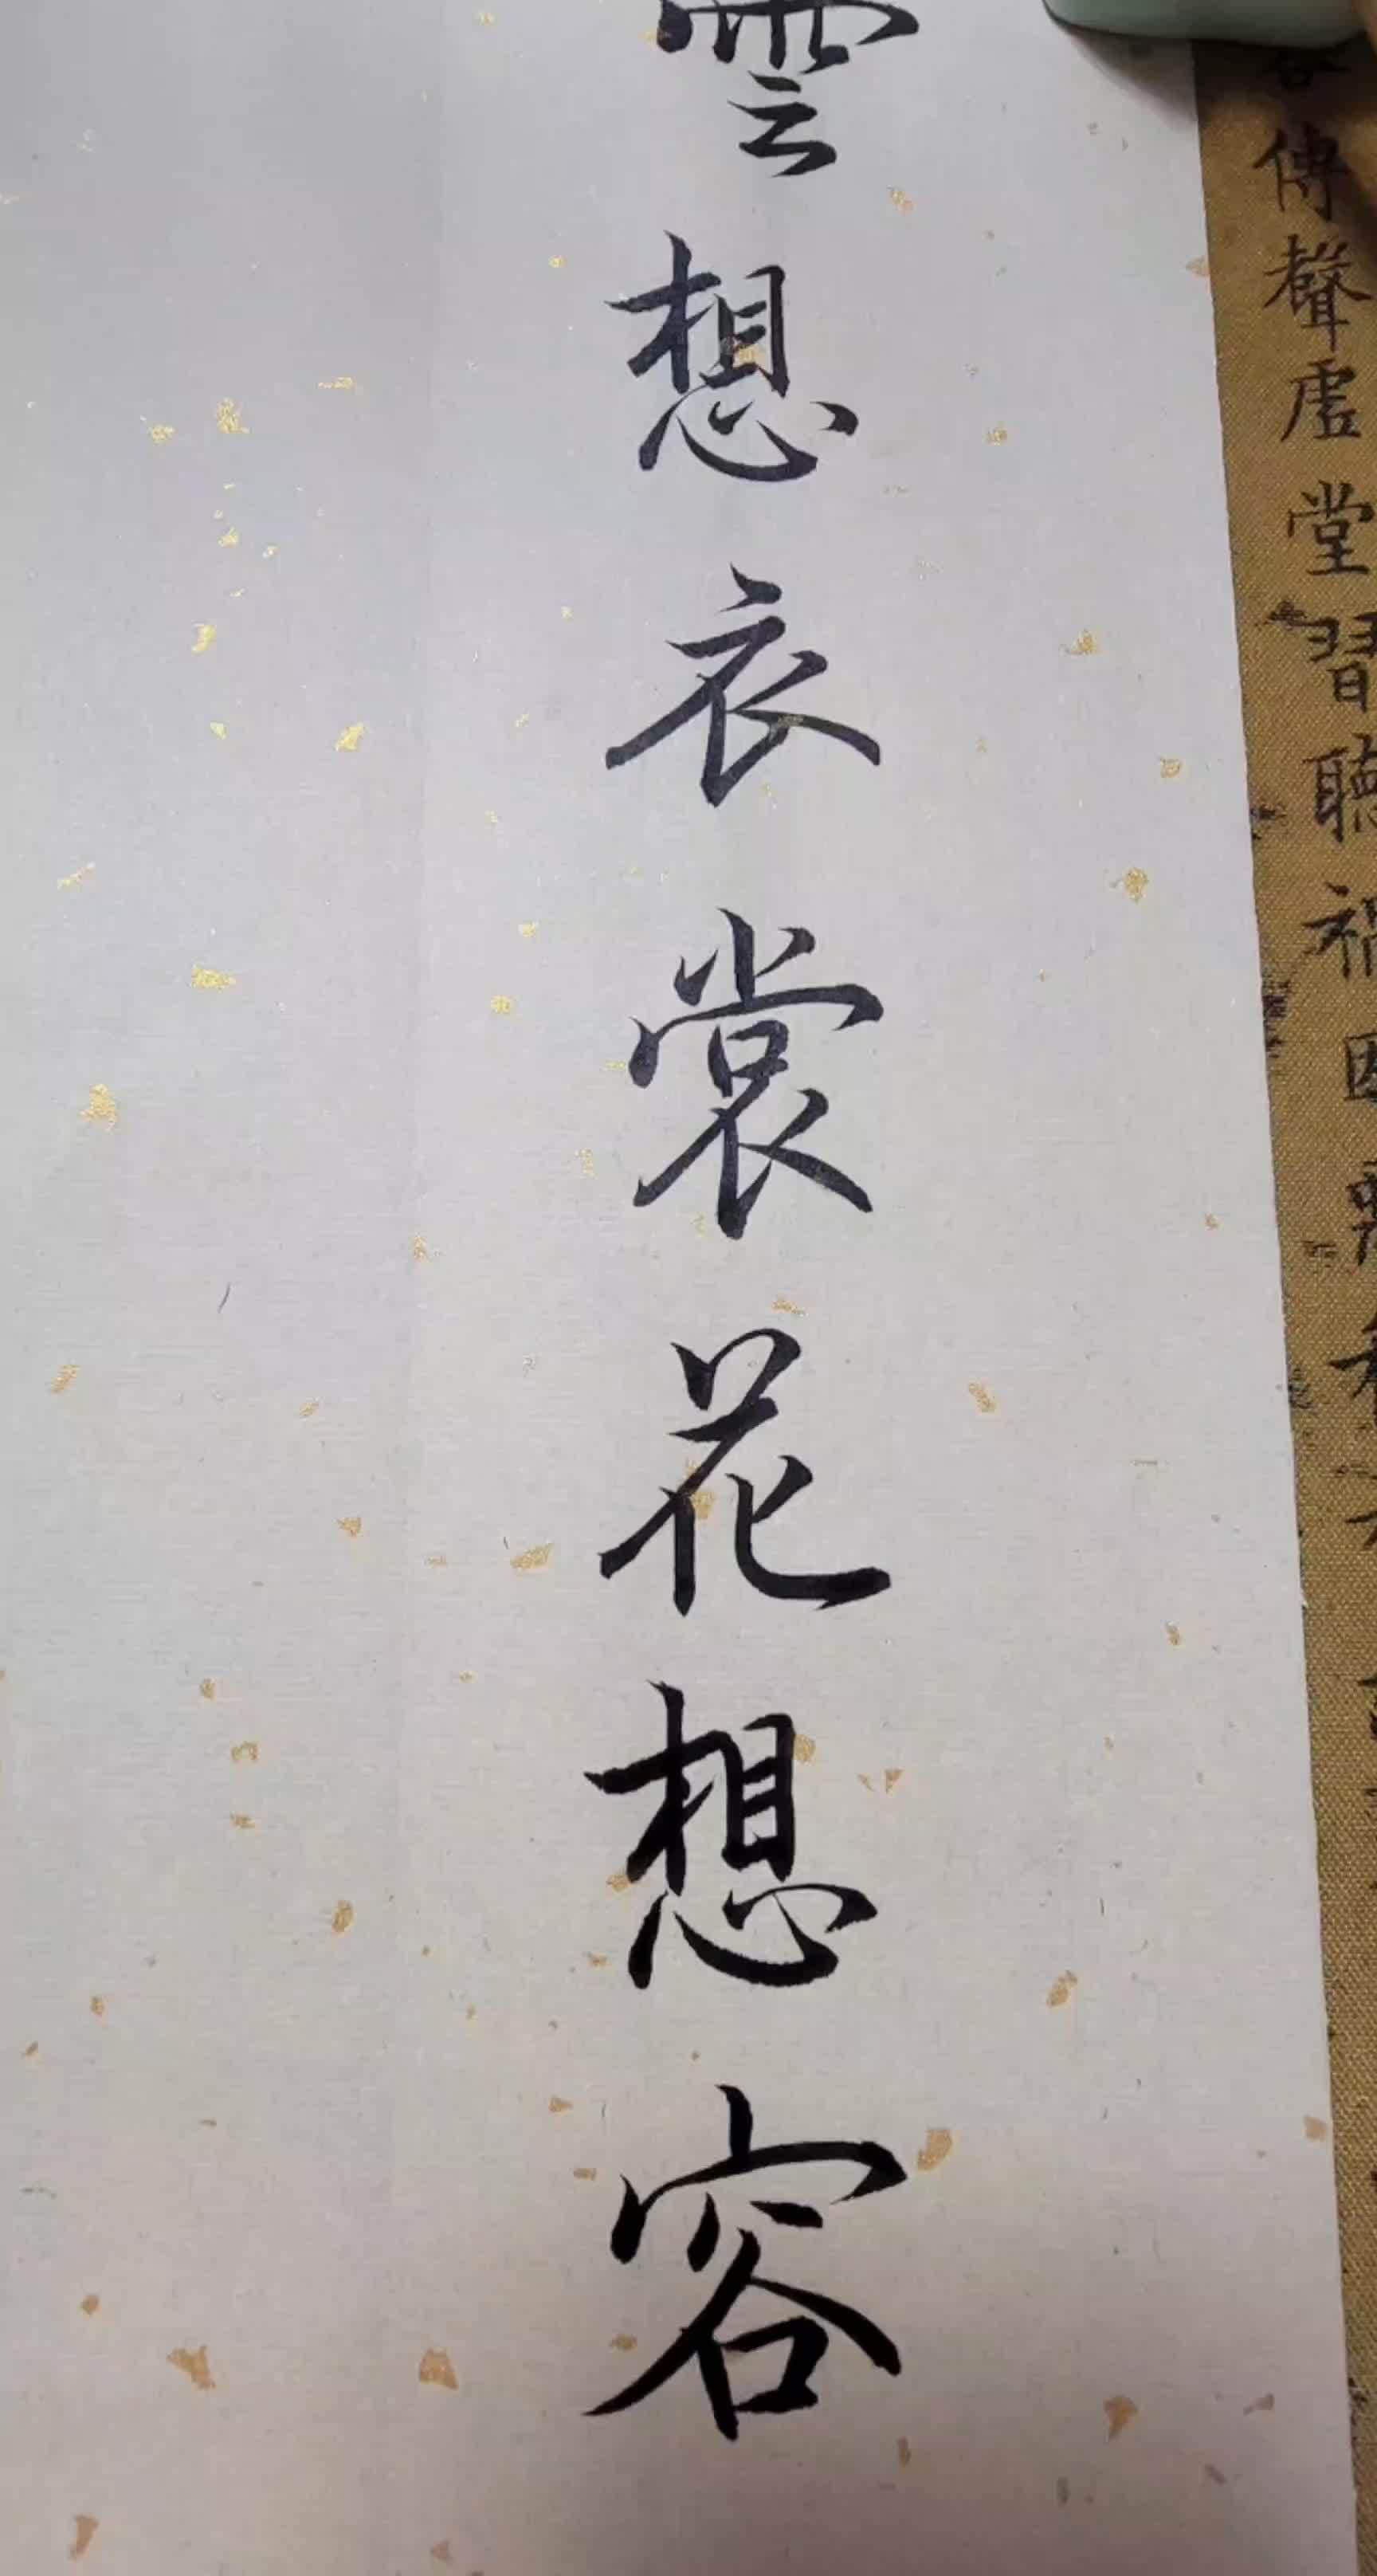 傳聲虛堂習聽禍因惡
雲想衣裳花想容